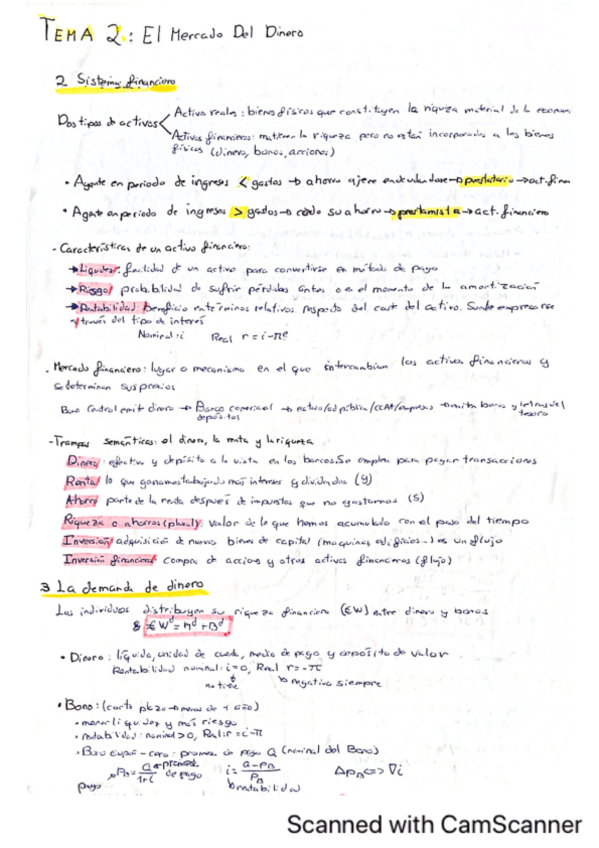 TEMA 2: El Mercado Del Dinero
2 Sistema financiero
Dos tipos de activos
Activos reales: bienes físicos que constituyen la riqueza material de la econom
Activos financieros: mantienen la riqueza pero no están incorporados a los bienes
físicos (dinero, bonos, acciones)
• Agente en periodo de ingresos < gastos → ahorro ajeno endeudandose → prestatario → act. finan
• Agente en periodo de ingresos > gastos → cede su ahorro → prestamista → act. financiero
- Características de un activo financiero:
→ Liquidez: facilidad de un activo para convertirse en método de pago
→ Riesgo: probabilidad de sufrir pérdidas antes o en el momento de la amortización
→ Rentabilidad: beneficio en términos relativos respecto del coste del activo. Suele expresarse
a través del tipo de interés
Nominal: i Real r = i - πe
. Mercado financiero: lugar o mecanismo en el que intercambian los activos financieros y
se determinan sus precios
Banco Central emite dinero → Banco comercial → /ad pública/CCAA/empresas → emiten bonos y letras del
depósitos tesoro
- Trampas semánticas: el dinero, la renta y la riqueza
Dinero: efectivo y depósito a la vista en los bancos. Se emplea para pagar transacciones
Renta: lo que ganamos trabajando más intereses y dividendos (Y)
Ahorro: parte de la renta después de impuestos que no gastamos (S)
Riqueza o ahorros (plural): valor de lo que hemos acumulado con el paso del tiempo
Inversión: adquisición de nuevos bienes de capital (maquinas, edificios...) es un flujo
Inversión financiera: compra de acciones y otros activos financieros (flujo)
3 La demanda de dinero
Los individuos distribuyen su riqueza financiera (€W) entre dinero y bonos
€Wd = Md + Bd
• Dinero: líquido, unidad de cuenta, medio de pago y depósito de valor
Rentabilidad nominal: i = 0, Real r = -π
no tiene negativa siempre
• Bono: (corto plazo → menos de 1 año)
• menor liquidez y más riesgo
• rentabilidad: nominal > 0, Real: r = i - π
• Bono cupón-cero: promesa de pago Q (nominal del Bono)
PB = Q/1+i → promesa de pago i = Q-PB/PB ΔPB <=> ∇i
pago rentabilidad
Scanned with CamScanner